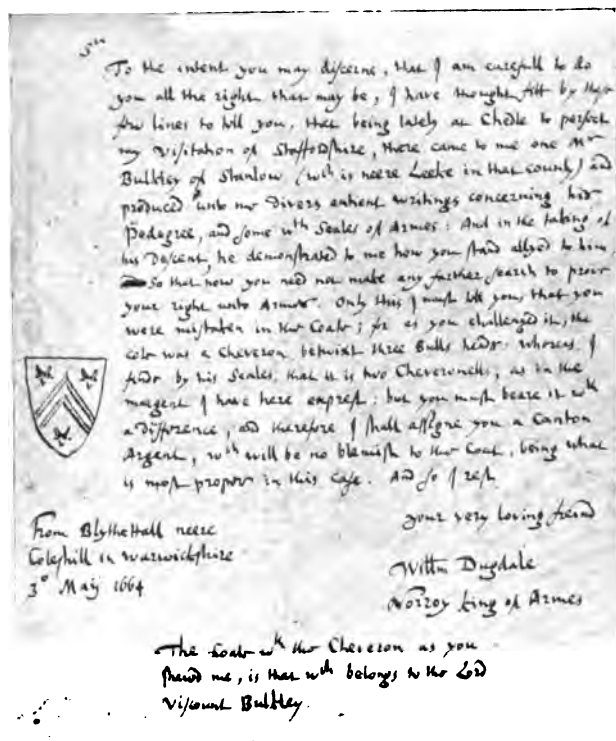 Sir
To the intent you may discerne, that I am carefull to do
you all the right that may be, I have thought fitt by these
few lines to tell you, that being lately at Chedle to perfect
my Visitation of Staffordshire, there came to me one Mr
Bulkley of Stanlow, (wch is neere Leeke in that county) and
produced unto me divers antient writings concerning his
Pedegree, and some wth Seales of Armes: And in the taking of
his Descent, he demonstrated to me how you stand allyed to him,
So that now you need not make any further search to prove
your right unto Armes. Only this I must tell you, that you
were mistaken in the Coate; for as you challenged it, the
cote was a Cheveron betwixt three Bulls heads: whereas I
finde by his Seales, that it is two Cheveronells, as in the
margent I have here exprest: but you must beare it wth
a Difference, and therefore I shall assigne you a Canton
Argent, wch will be no blemish to the Coat, being what
is most proper in this case. And so I rest
your very loving freind
From Blythe Hall neere
Coleshill in Warwickshire
3o Maij 1664
Willm Dugdale
Norroy King of Armes
The Coate wth the Cheveron as you
shewd me, is that wch belongs to the Lord
Viscount Bulkley.